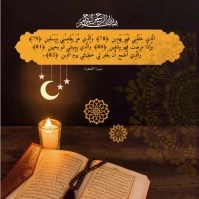 بسم الله الرحمن الرحيم
الَّذِي خَلَقَنِي فَهُوَ يَهْدِينِ ﴿78﴾ وَالَّذِي هُوَ يُطْعِمُنِي وَيَسْقِينِ ﴿79﴾
وَإِذَا مَرِضْتُ فَهُوَ يَشْفِينِ ﴿80﴾ وَالَّذِي يُمِيتُنِي ثُمَّ يُحْيِينِ ﴿81﴾
وَالَّذِي أَطْمَعُ أَن يَغْفِرَ لِي خَطِيئَتِي يَوْمَ الدِّينِ ﴿82﴾
سورة الشعراء